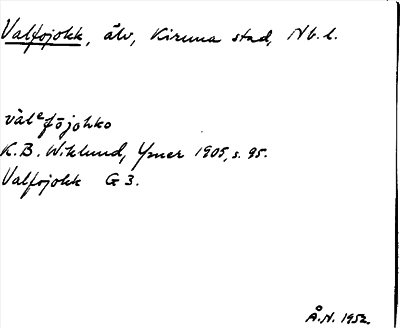 Valfojokk, älv, Kiruna stad, Nb. l.
välᵉfōjohko
K. B. Wiklund, Ymer 1905, s. 95.
Valfojokk G 3.
Å. N. 1952